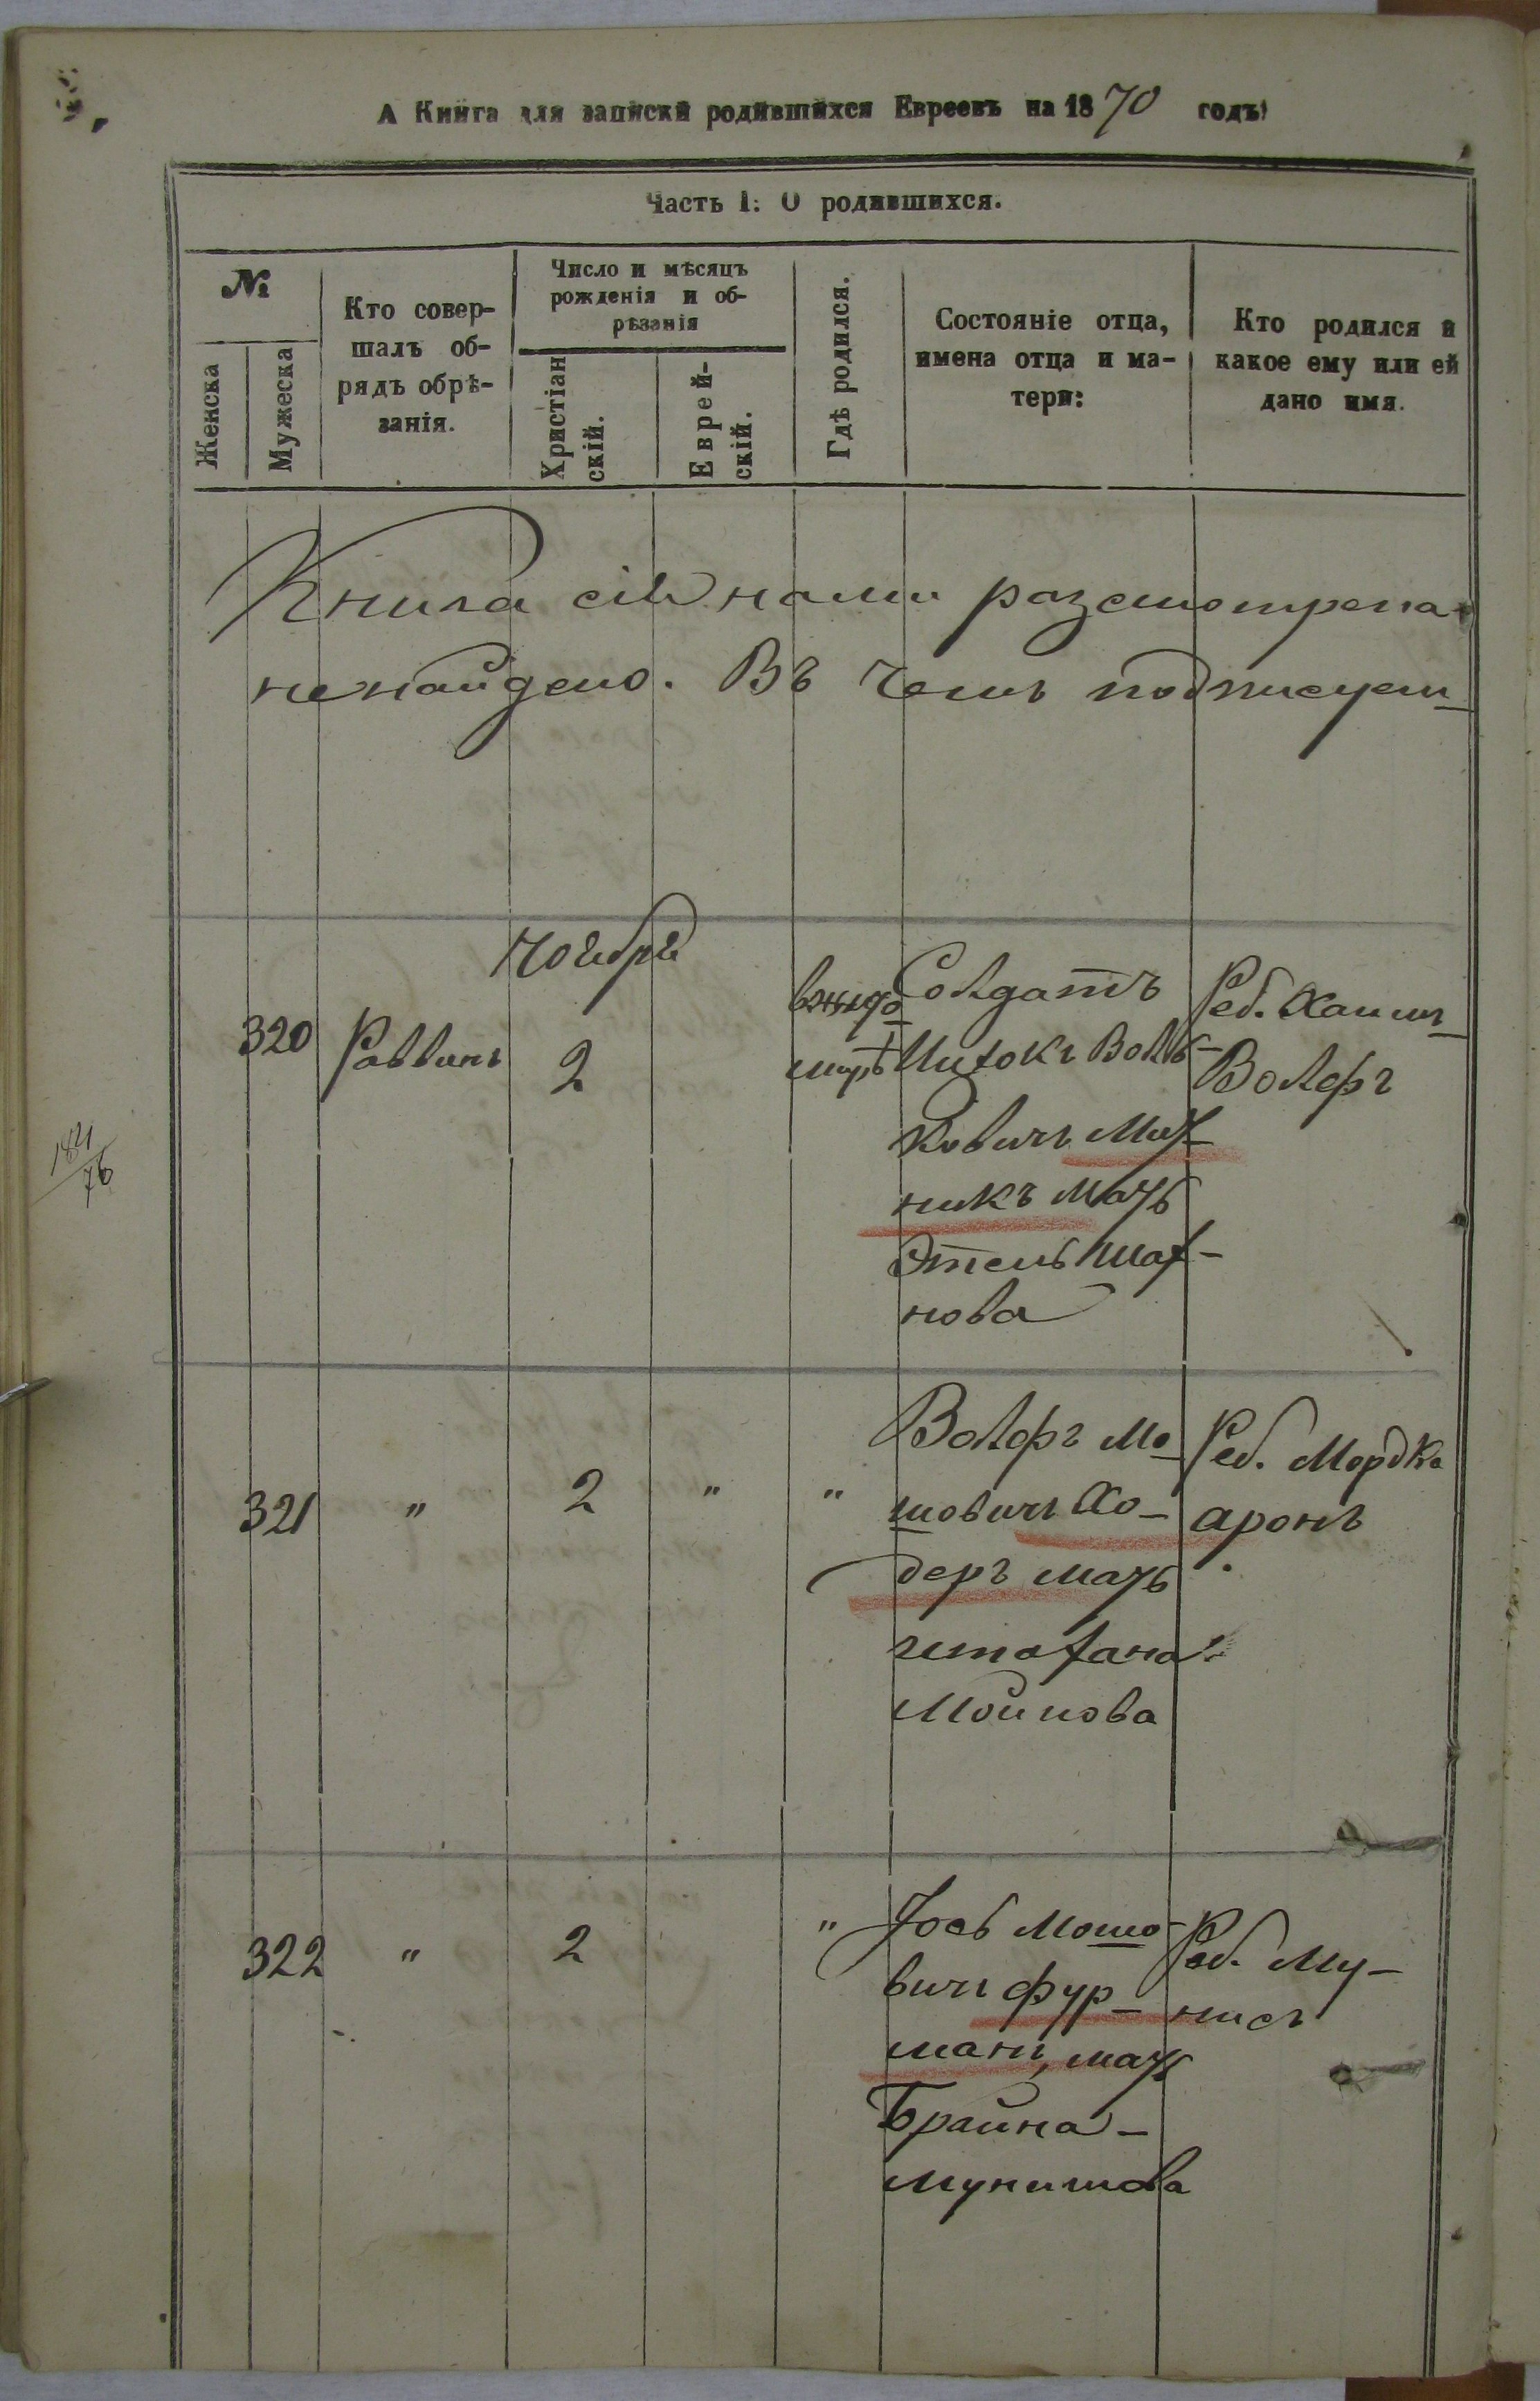 А Книга для записки родившихся Евреевъ на 1870 годъ
Часть I: О родившихся.
№
Женска
Мужеска
Кто совер-
шалъ об-
рядъ обрѣ-
занія.
Число и мѣсяцъ
рожденія и об-
рѣзанія
Христіан
скій.
Еврей-
скій.
Гдѣ родился.
Состояніе отца,
имена отца и ма-
тери:
Кто родился и
какое ему или ей
дано имя.
Книга сія нами разсмотрена
ненайдено. Въ чемъ подписуем
Ноября
320
Раввинъ
2
вжито
мирѣ
Солдатъ
Ицхокъ Воль-
ковичъ
никъ мать
Этель Шах-
нова
Реб. Хаим
Волфъ
181/76
321
"
2
"
"
Волфъ Мо
шовичъ Хо-
деръ мать
Мошкова
Реб. Мордка
аронъ
322
"
2
"
Іось Мошо
вичъ Фур-
манъ, мать
Брайна-
Мунишова
Реб. Му-
нисъ